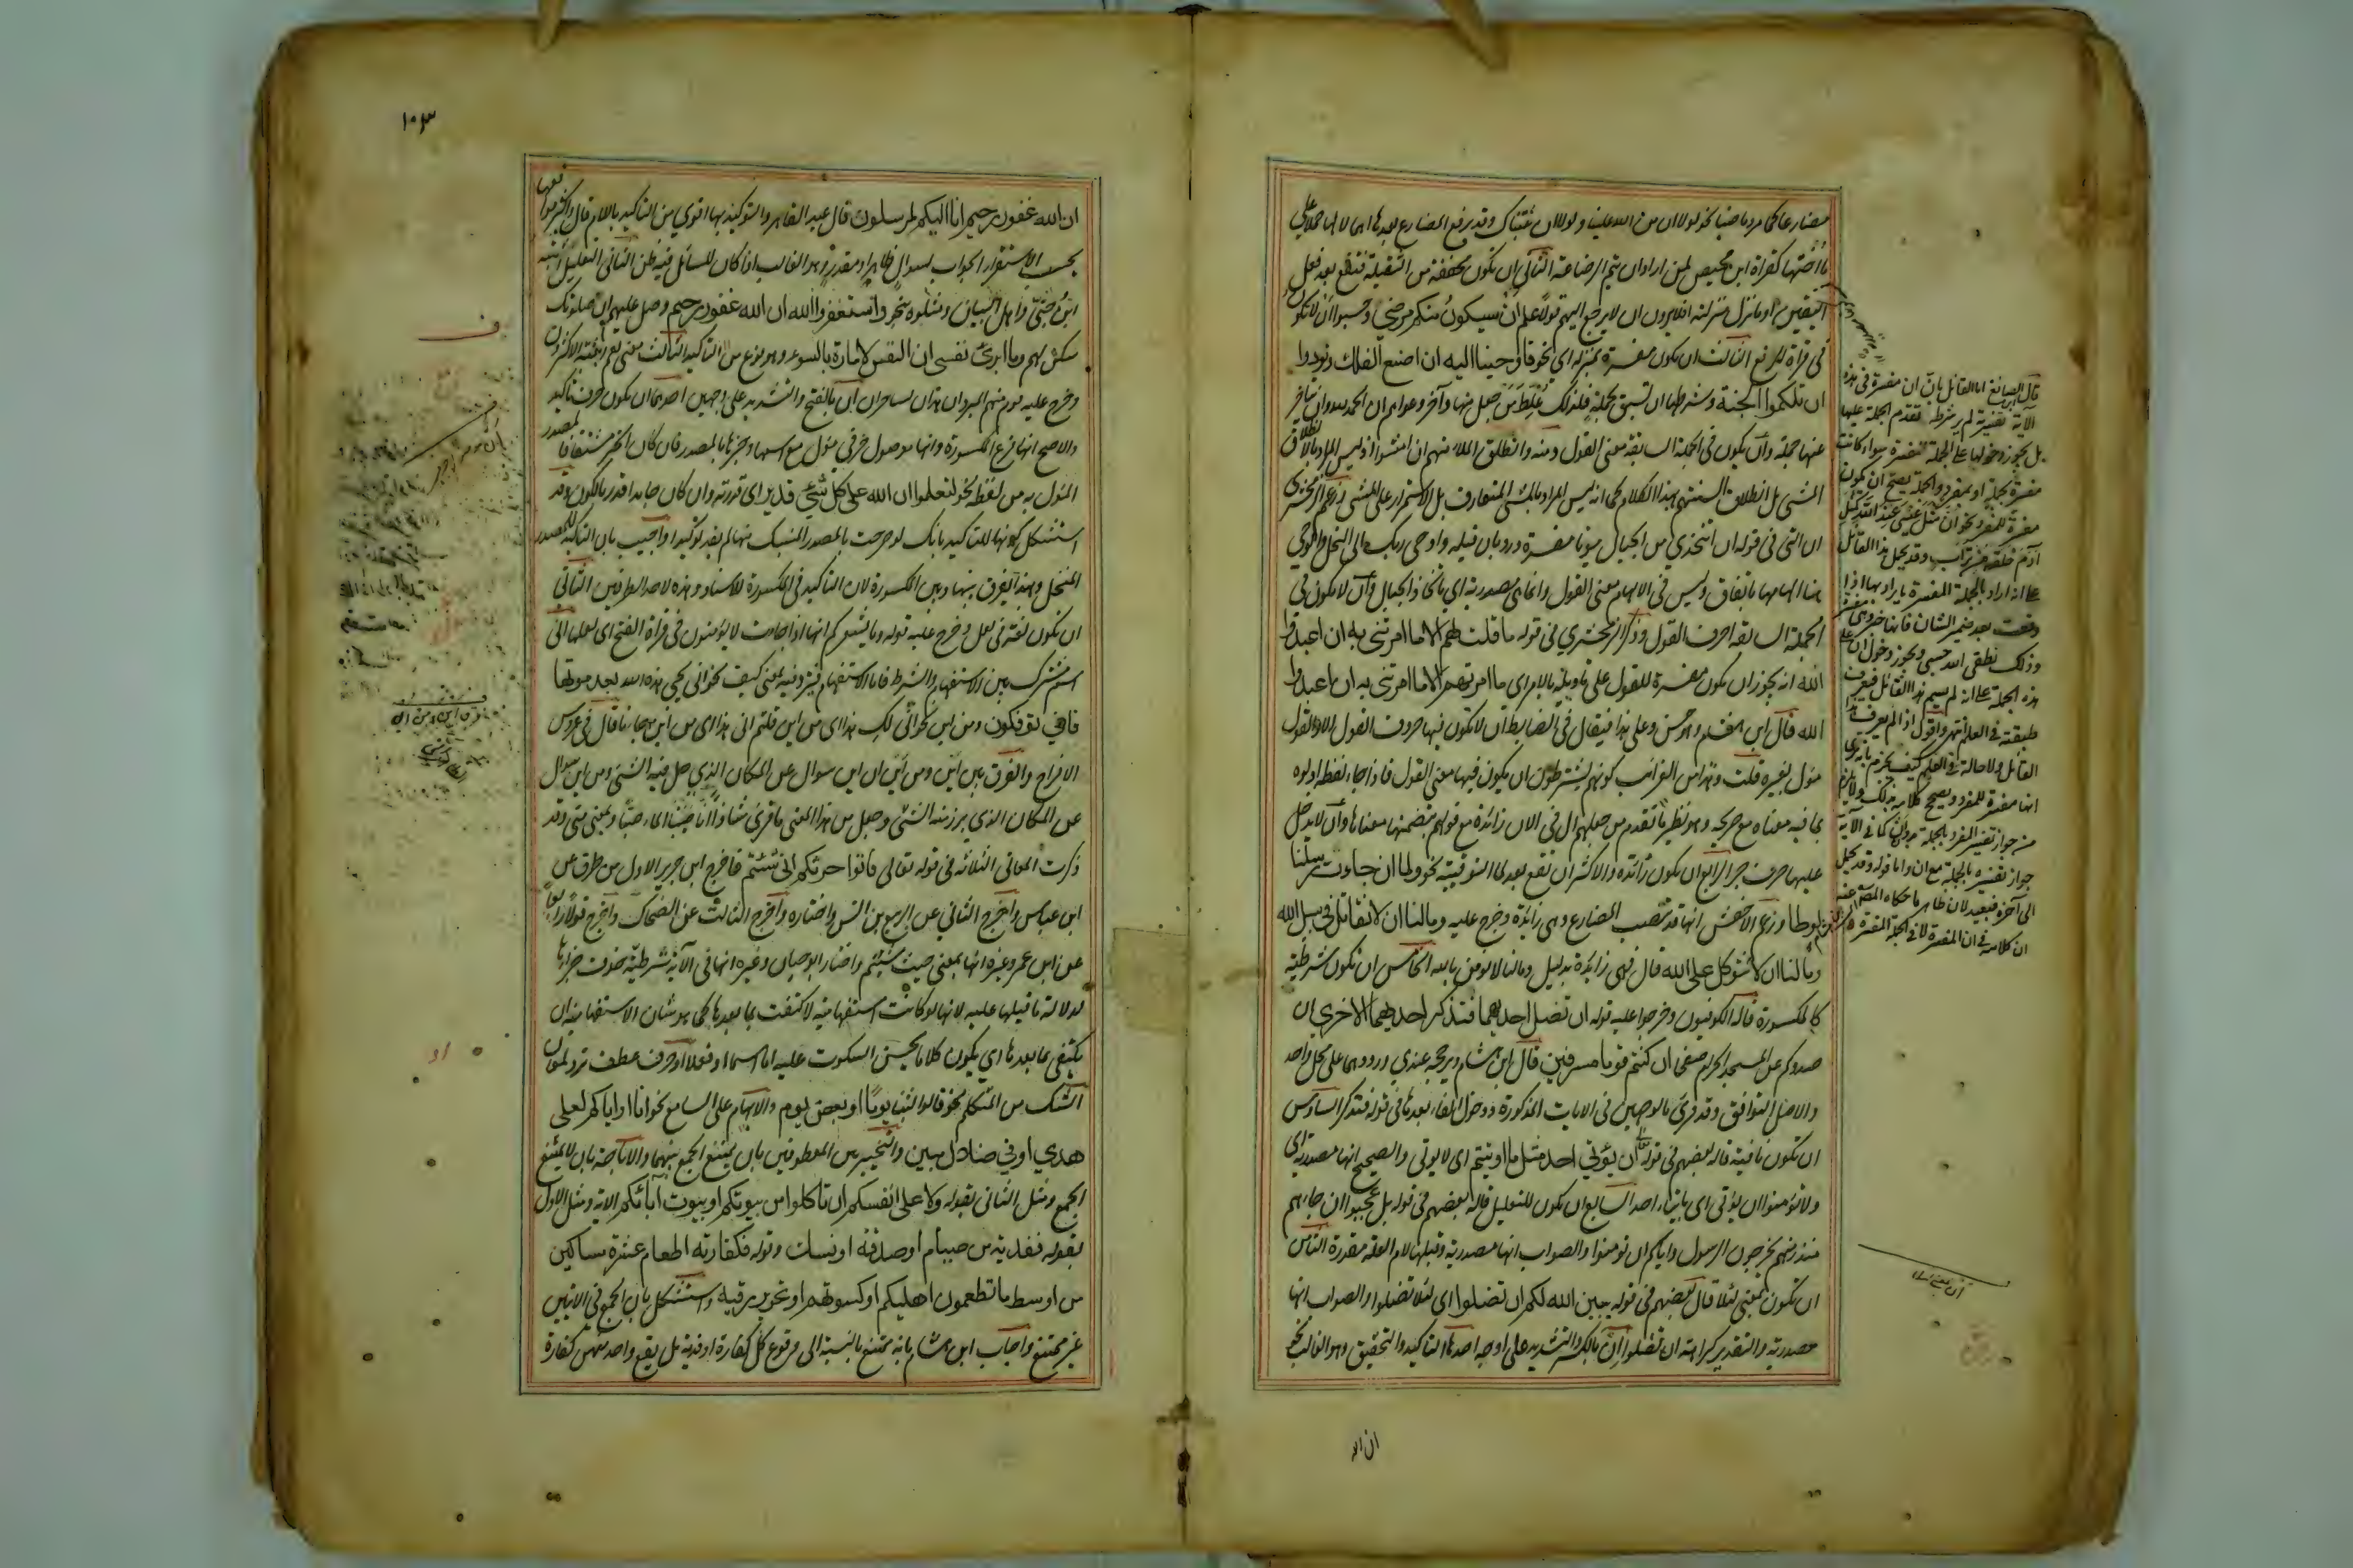 مضارعا كما مر وماضيا نحو لولا ان من الله علينا ولولا ان ثبتناك وقد يرفع المضارع بعدها اهمالا لها حملا على
ما اختها كقراة ابن محيصن لمن اراد ان يتم الرضاعة الثاني ان تكون مخففة من الثقيلة فتقع بعد فعل
اليقين او ما نزل منزلته افلا يرون ان لا يرجع اليهم قولا علم ان سيكون منكم مرضي وحسبوا ان لا تكون
في قراة الرفع الثالث ان تكون مفسرة بمنزلة اي نحو فاوحينا اليه ان اصنع الفلك ونودوا
ان تلكموا الجنة وشرطها ان تسبق بجملة فلذلك غلط من جعل منها وآخر دعواهم ان الحمد لله وان يتاخر
عنها جملة وان يكون في الجملة السابقة معنى القول ومنه وانطلق الملا منهم ان امشوا اذ ليس المراد بالانطلاق
المشي بل انطلاق السنتهم بهذا الكلام كما انه ليس المراد بالمشي المتعارف بل الاستمرار على المشي وزعم الزمخشري
ان التي في قوله ان اتخذي من الجبال بيوتا مفسرة ورد بان قبله واوحى ربك الى النحل والوحي
هنا الهام باتفاق وليس في الالهام معنى القول وانما هي مصدرية اي باتخاذ الجبال وان لا يكون في
الجملة السابقة احرف القول وذكر الزمخشري في قوله ما قلت لهم الا ما امرتني به ان اعبدوا
الله انه يجوز ان تكون مفسرة للقول على تاويله بالامر اي ما امرتهم الا ما امرتني به ان اعبدوا
الله قال ابن هشام وهو حسن وعلى هذا فيقال في الضابط ان لا تكون فيها حروف القول الا والقول
مؤل بغيره قلت وهذا من الغرائب كونهم يشترطون ان يكون فيها معنى القول فاذا جاء لفظه اولوه
بما فيه معناه مع صريحه وهو نظير ما تقدم من جعلهم ال في الان زائدة مع قولهم بتضمنها معناها وان لا يدخل
عليها حرف جر الرابع ان تكون زائدة والاكثر ان تقع بعد لما التوقيتية نحو ولما ان جاءت رسلنا
لوطا وزعم الاخفش انها قد تنصب المضارع وهي زائدة وخرج عليه وما لنا ان لا نقاتل في سبيل الله
وما لنا ان لا نتوكل على الله قال فهي زائدة بدليل وما لنا لا نؤمن بالله الخامس ان تكون شرطية
كالمكسورة قاله الكوفيون وخرجوا عليه قوله ان تضل احديهما فتذكر احديهما الاخري ان
صدوكم عن المسجد الحرام صفحا ان كنتم قوما مسرفين قال ابن هشام ويرجحه عندي تواردهما على محل واحد
والاصل التوافق وقد قرئ بالوجهين في الايات المذكورة ودخول الفاء بعدها في قوله فتذكر السادس
ان تكون نافية قاله بعضهم في قوله ان يؤتي احد مثل ما اوتيتم اي لا يوتي والصحيح انها مصدرية اي
ولا تؤمنوا ان يؤتي اي بايتاء احد السابع ان تكون للتعليل قاله بعضهم في قوله بل عجبوا ان جاءهم
منذر منهم يخرجون الرسول واياكم ان تومنوا والصواب انها مصدرية وقبلها لام العلة مقدرة الثامن
ان تكون بمعنى لئلا قاله بعضهم في قوله يبين الله لكم ان تضلوا اي لئلا تضلوا والصواب انها
مصدرية والتقدير كراهة ان تضلوا ان بالكسر والتشديد على اوجه احدها التاكيد والتحقيق وهو الغالب نحو
ان الله
قال ابن الصائغ اما القائل بان ان مفسرة في هذه
الآية تفسيرية لم يشرط تقدم الجملة عليها
بل يجوز دخولها على الجملة المفسرة سواء كانت
مفسرة بجملة او بمفرد والجملة يصح ان تكون
مفسرة للمفرد نحو ان مثل عيسى عند الله كمثل
آدم خلقه من تراب وقد يحمل هذا القائل
على انه اراد بالجملة المفسرة ما يراد بها اذا
وقعت بعد ضمير الشان
١٠٣
ان الله غفور رحيم انا اليكم لمرسلون قال عبد القاهر والتوكيد بها اقوى من التاكيد باللام قال واكثر مواقعها
بحسب الاستقرار الجواب لسوال ظاهر او مقدر وهو الغالب اذا كان للسائل فيه ظن الثاني التعليل اثبته
ابن جني واهل البيان ومثلوه بنحو واستغفروا الله ان الله غفور رحيم وصل عليهم ان صلوتك
سكن لهم وما ابرئ نفسي ان النفس لامارة بالسوء وهو نوع من التاكيد الثالث معنى نعم اثبته الاكثرون
وخرج عليه قوم منهم المبرد ان هذان لساحران ان بالفتح والتشديد على وجهين احدهما ان تكون حرف تاكيد
والاصح انها فرع المكسورة وانها موصول حرفي مؤل مع اسمها وخبرها بالمصدر فان كان الخبر مشتقا فالمصدر
المؤل به من لفظه نحو لتعلموا ان الله على كل شئ قدير اي قدرته وان كان جامدا قدر بالكون وقد
استشكل كونها للتاكيد بانك لو صرحت بالمصدر المنسبك منها لم يفد توكيدا واجيب بان التاكيد للمصدر
المنحل وبهذا يفرق بينها وبين المكسورة لان التاكيد في المكسورة للاسناد وهذه لاحد الطرفين الثاني
ان تكون لغة في لعل وخرج عليه قوله وما يشعركم انها اذا جاءت لا يؤمنون في قراة الفتح اي لعلها انى
اسم مشترك بين الاستفهام والشرط فاما الاستفهام فترد فيه بمعنى كيف نحو انى يحيي هذه الله بعد موتها
فاني تؤفكون ومن اين نحو انى لك هذا اي من اين قلتم انى هذا اي من اين جاءنا قال في عروس
الافراح والفرق بين اين ومن اين ان اين سوال عن المكان الذي حل فيه الشئ ومن اين سوال
عن المكان الذي برز منه الشئ وجعل من هذا المعنى ما قرئ شاذا انا صببنا الماء صبا وبمعنى متى وقد
ذكرت المعاني الثلاثة في قوله تعالى فاتوا حرثكم انى شئتم فاخرج ابن جرير الاول من طرق عن
ابن عباس واخرج الثاني عن الربيع بن انس واختاره واخرج الثالث عن الضحاك واخرج قولا رابعا
عن ابن عمر وغيره انها بمعنى حيث شئتم واختار ابو حيان وغيره انها في الآية شرطية حذف جزاؤها
لدلالة ما قبلها عليه لانها لو كانت استفهامية لاكتفت بما بعدها كما هو شان الاستفهامية ان
يكتفي بما بعدها اي يكون كلاما يحسن السكوت عليه اما اسما او فعلا او حرف عطف ترد لمعان
الشك من المتكلم نحو قالوا لبثنا يوما او بعض يوم والابهام على السامع نحو انا او اياكم لعلى
هدي او في ضلال مبين والتخيير بين المعطوفين بان يمتنع الجمع بينهما والاباحة بان لا يمتنع
الجمع ومثل الثاني بقوله ولا على انفسكم ان تاكلوا من بيوتكم او بيوت آبائكم الاية ومثل الاول
بقوله ففدية من صيام او صدقة او نسك وقوله فكفارته اطعام عشرة مساكين
من اوسط ما تطعمون اهليكم او كسوتهم او تحرير رقبة واستشكل بان الجمع في الايتين
غير ممتنع واجاب ابن هشام بانه ممتنع بالنسبة الى وقوع كل كفارة او فدية بل يقع واحد منهن كفارة
ف
او